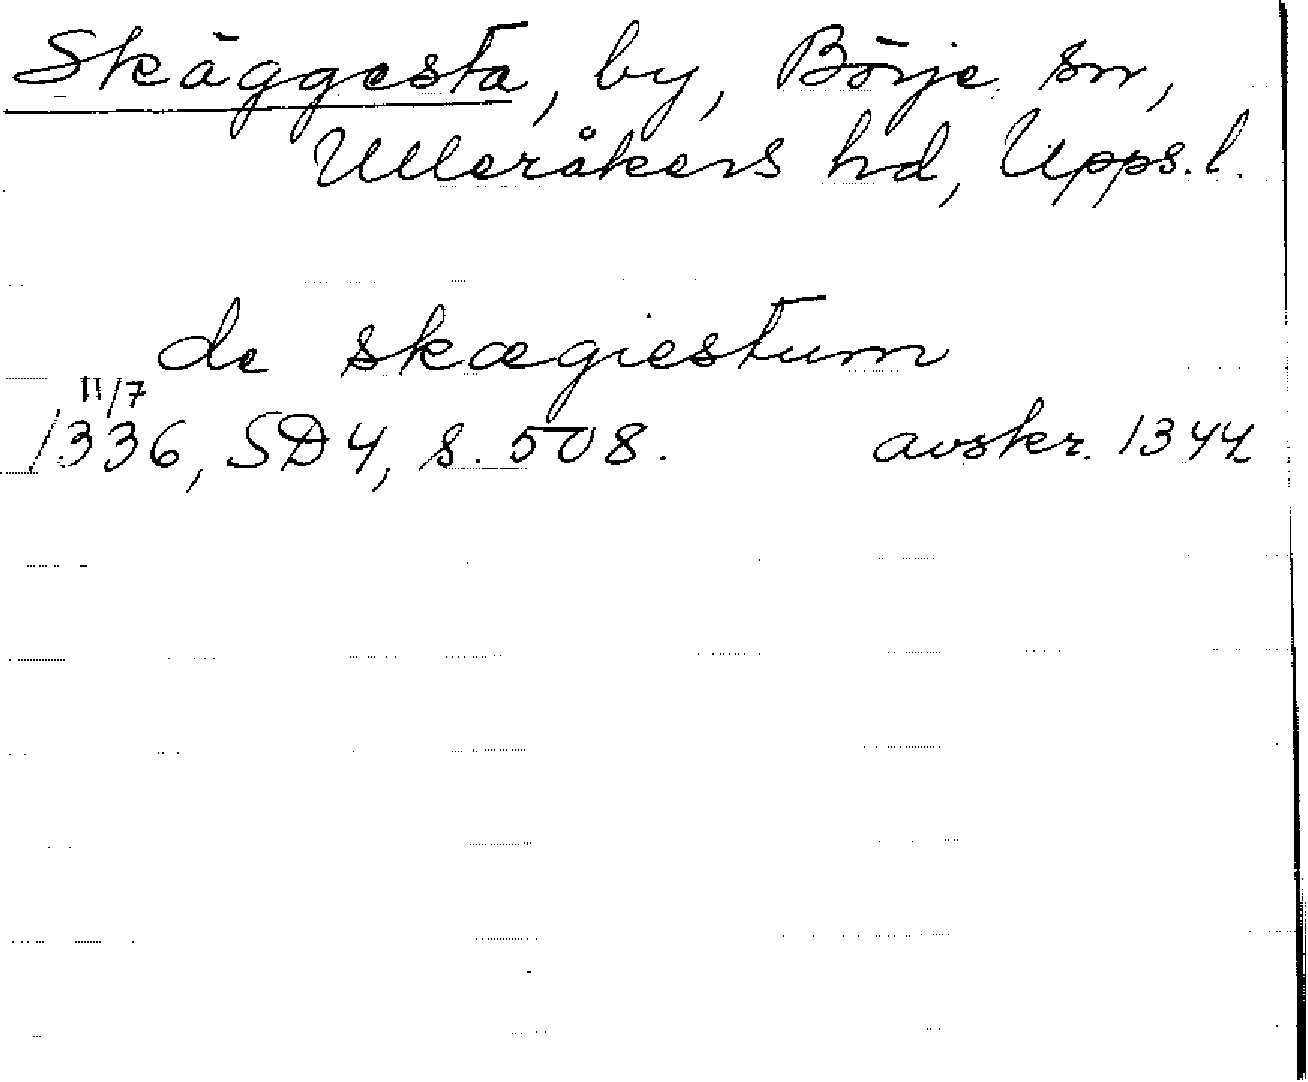 Skäggesta, by, Börje sn,
Ulleråkers hd, Upps.l.
de skægiestum
11/7
1336, SD4, s. 508. avskr. 1344